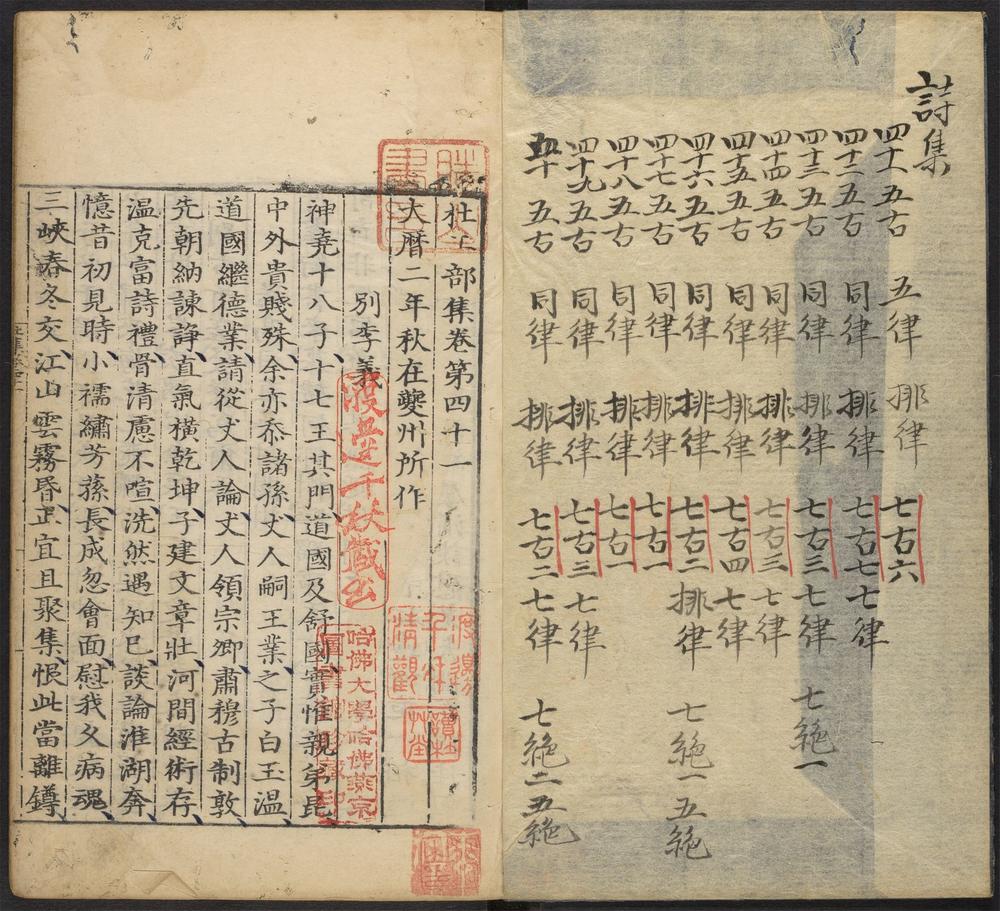 詩集
四十一 五古 五律 排律 七古六
四十二 五古 同律 排律 七古七 七律
四十三 五古 同律 排律 七古三 七律 七絶一
四十四 五古 同律 排律 七古三 七律
四十五 五古 同律 排律 七古四 七律
四十六 五古 同律 排律 七古二 排律 七絶一 五絶
四十七 五古 同律 排律 七古一
四十八 五古 同律 排律 七古一
四十九 五古 同律 排律 七古三 七律
五十 五古 同律 排律 七古二 七絶二 五絶
杜工部集卷第四十一
大曆二年秋在夔州所作
別李義
神堯十八子十七王其門道國及舒國實惟親弟昆
中外貴賤殊余亦忝諸孫丈人嗣王業之子白玉溫
道國繼德業請從丈人論丈人領宗卿肅穆古制敦
先朝納諫諍直氣橫乾坤子建文章壯河間經術存
溫克富詩禮骨清慮不喧洗然遇知己談論淮湖奔
憶昔初見時小襦繡芳蓀長成忽會面慰我久病魂
三峽春冬交江山雲霧昏正宜且聚集恨此當離罇
渡邊千秋藏書
渡邊千秋清觀
讀杜艸堂
哈佛大學哈佛燕京圖書館珍藏印